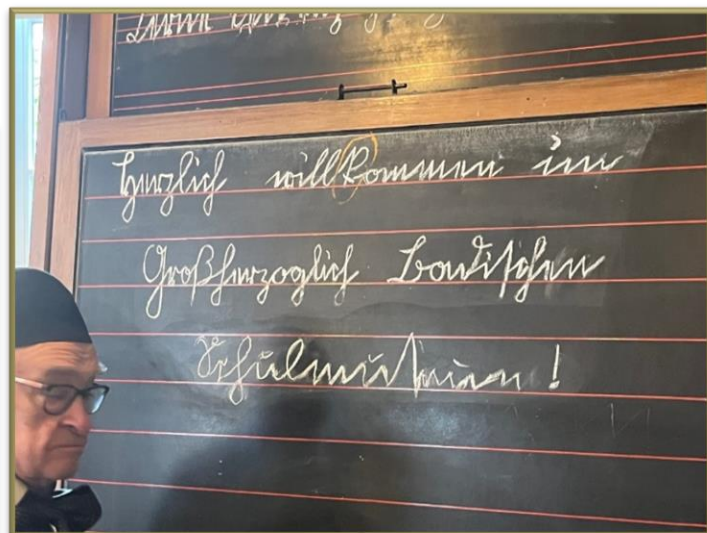 Herzlich willkommen im
Großherzoglich Badischen
Schulmuseum!